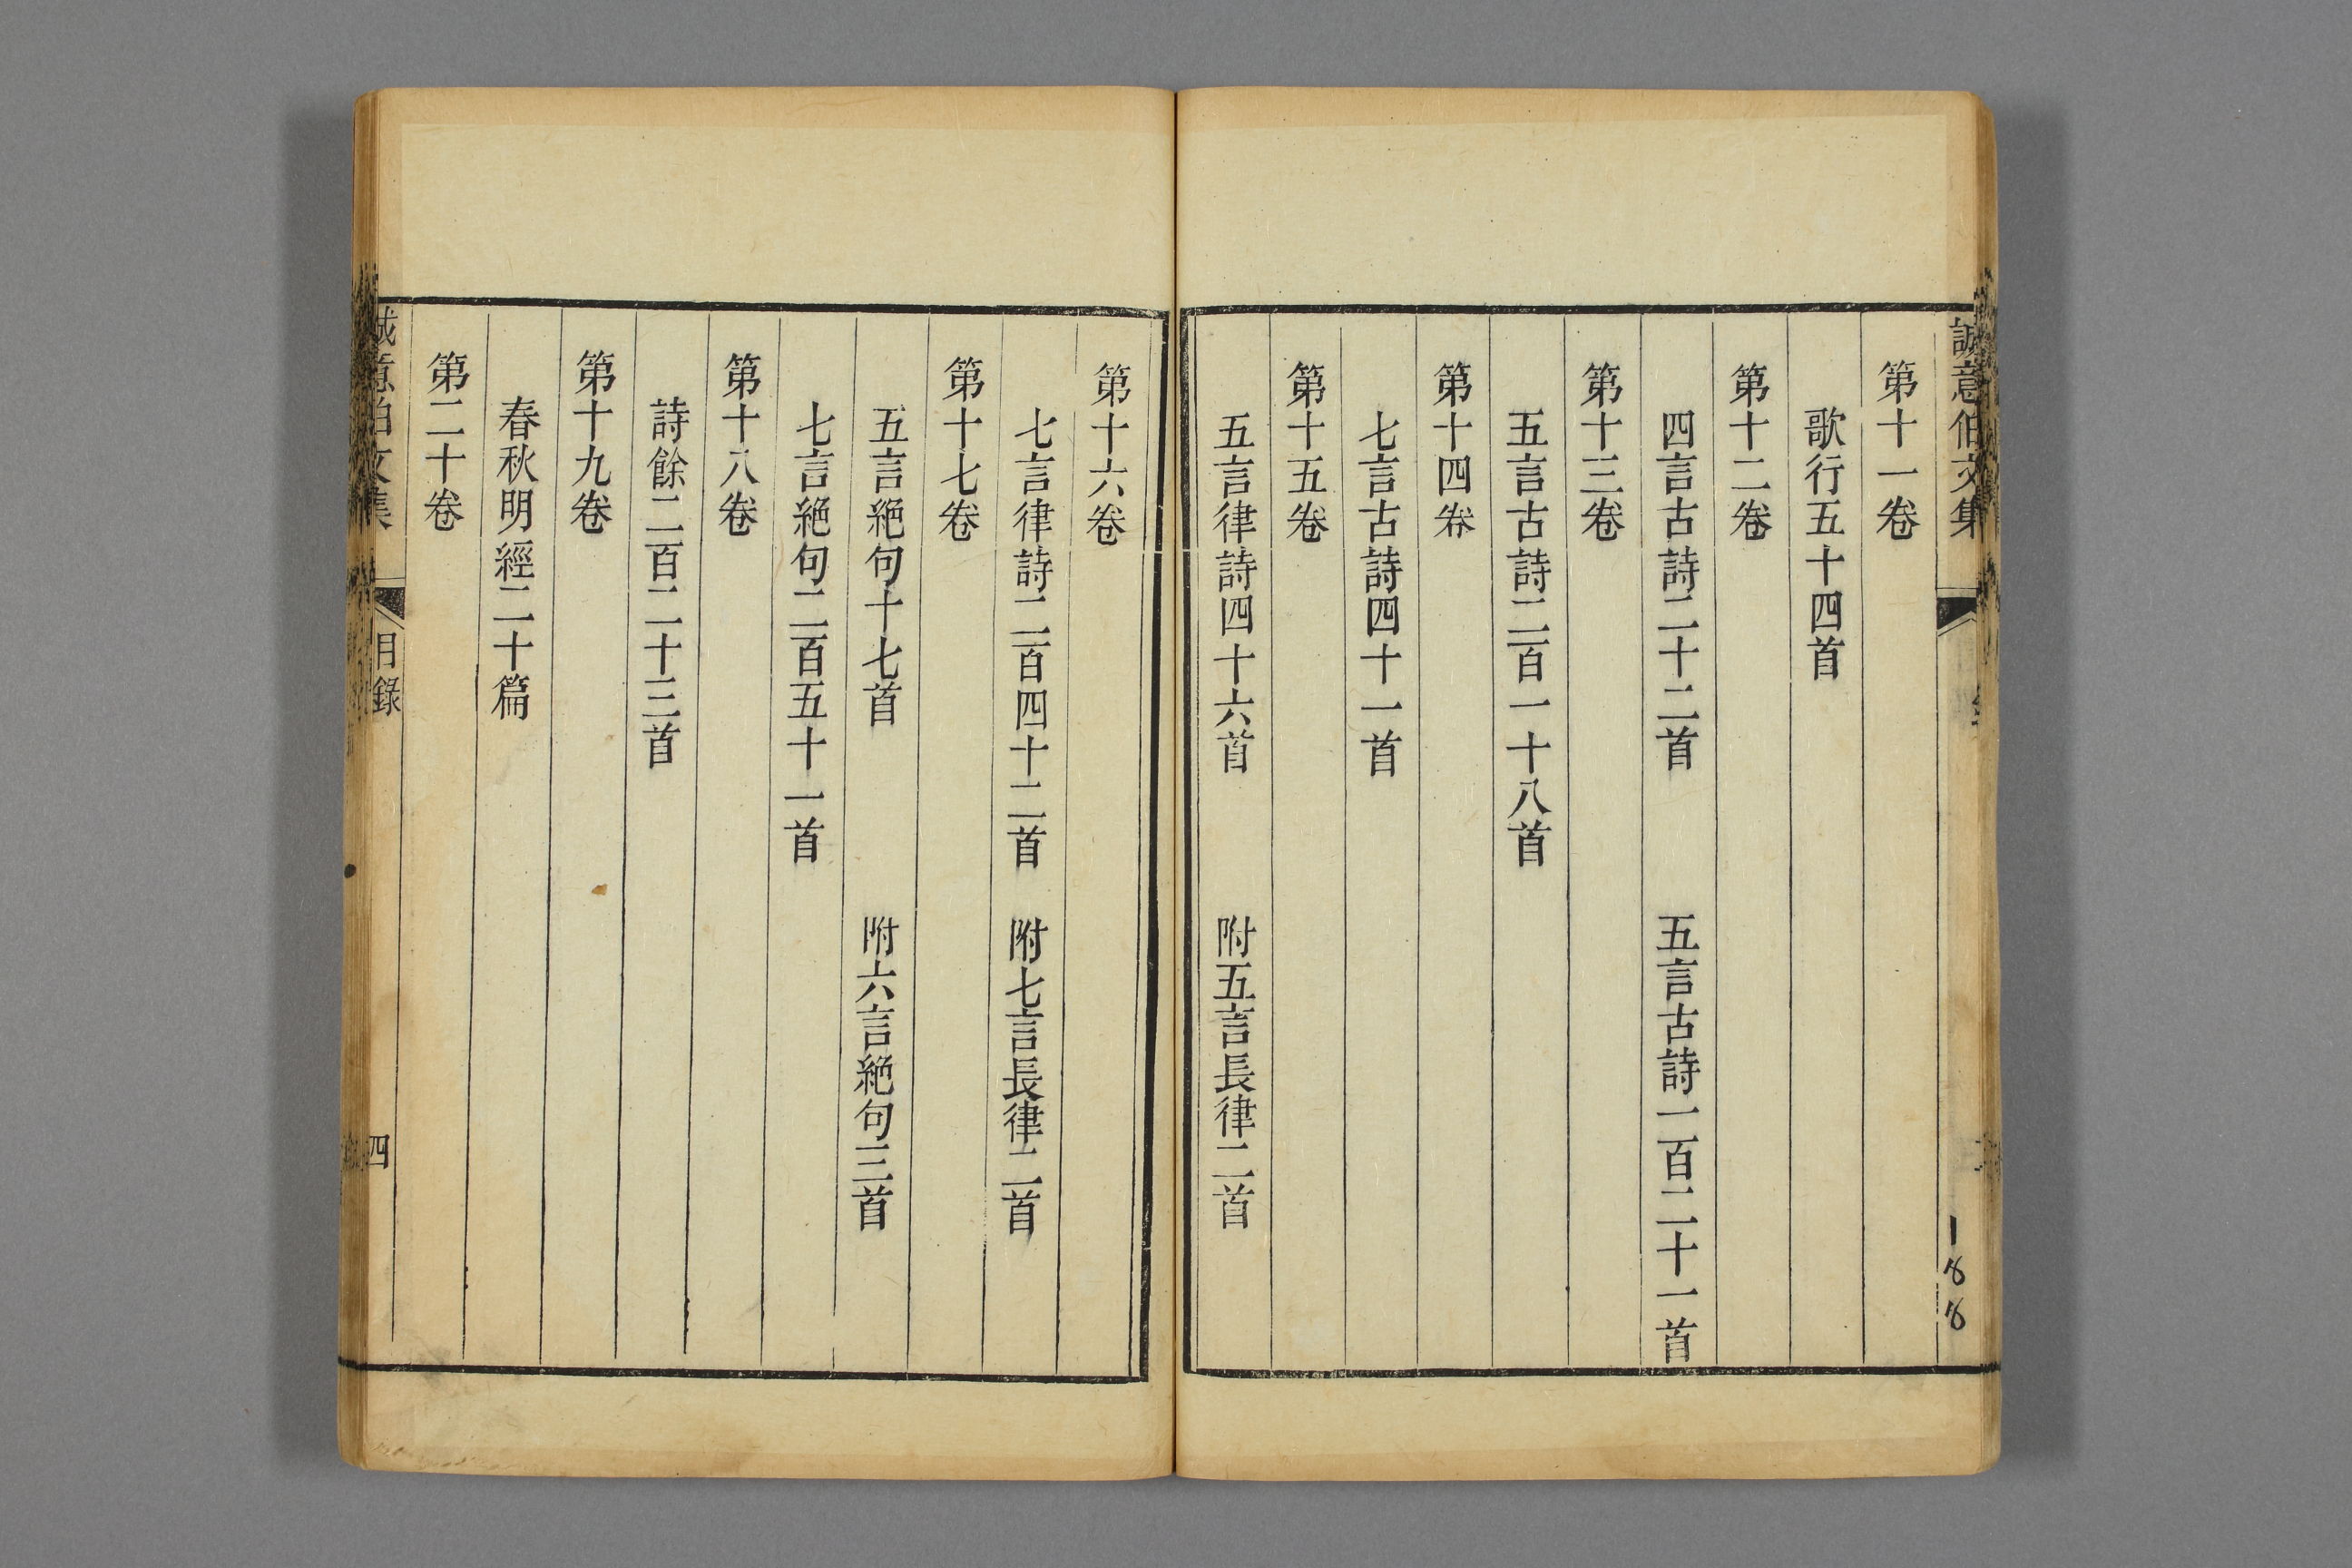 誠意伯文集
188
第十一卷
歌行五十四首
第十二卷
四言古詩二十二首 五言古詩一百二十一首
第十三卷
五言古詩二百一十八首
第十四卷
七言古詩四十一首
第十五卷
五言律詩四十六首 附五言長律二首
第十六卷
七言律詩二百四十二首 附七言長律二首
第十七卷
五言絕句十七首 附六言絕句三首
七言絕句二百五十一首
第十八卷
詩餘二百二十三首
第十九卷
春秋明經二十篇
第二十卷
誠意伯文集 目錄 四